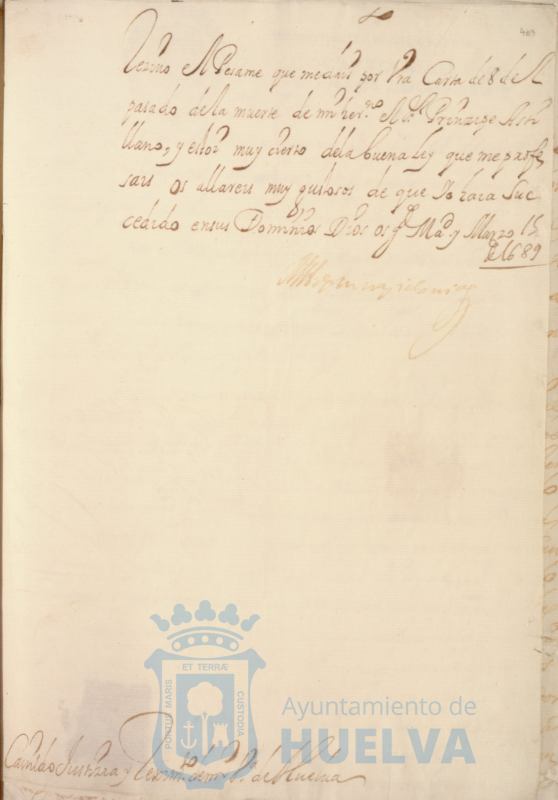 409
rezivo el Pesame que me dais por vra Carta de 8 de el
pasado de la muerte de mi herno el Sr Prinzipe Asti
llano, y estoi muy cierto de la buena ley que me profe
sais os allareis muy gustosos de que Yo haia suc
cedido en sus Dominios Dios os gde Md y Marzo 15
de 1689
Cavildo Justizia y Reximto de mi Va de Huelva
PORTUS MARIS
ET TERRÆ
CUSTODIA
Ayuntamiento de
HUELVA